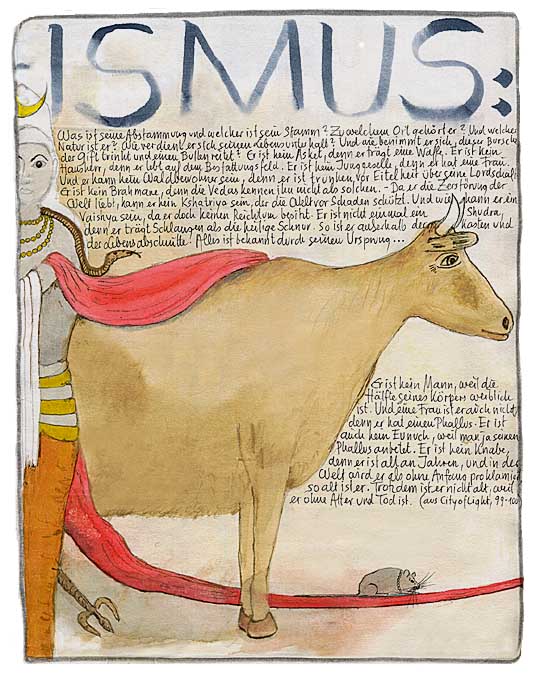 ISMUS:
Was ist seine Abstammung und welcher ist sein Stamm? Zu welchem Ort gehört er? Und welcher
Natur ist er? Wie verdient er sich seinen Lebensunterhalt? Und wie benimmt er sich, dieser Bursche
der Gift trinkt und einen Bullen reitet? Er ist kein Asket, denn er trägt eine Waffe. Er ist kein
Hausherr, denn er lebt auf dem Bestattungsfeld. Er ist kein Junggeselle, denn er hat eine Frau.
Und er kann kein Waldbewohner sein, denn er ist trunken vor Eitelkeit über seine Lordschaft.
Er ist kein Brahmane, denn die Vedas kennen ihn nicht als solchen. - Da er die Zerstörung der
Welt liebt, kann er kein Kshatriya sein, der die Welt vor Schaden schützt. Und wie kann er ein
Vaishya sein, da er doch keinen Reichtum besitzt. Er ist nicht einmal ein Shudra,
denn er trägt Schlangen als die heilige Schnur. So ist er außerhalb der Kasten und
der Lebensabschnitte! Alles ist bekannt durch seinen Ursprung...
Er ist kein Mann, weil die
Hälfte seines Körpers weiblich
ist. Und eine Frau ist er auch nicht,
denn er hat einen Phallus. Er ist
auch kein Eunuch, weil man ja seinen
Phallus anbetet. Er ist kein Knabe,
denn er ist alt an Jahren, und in der
Welt wird er als ohne Anfang proklamiert,
so alt ist er. Trotzdem ist er nicht alt, weil
er ohne Alter und Tod ist. (aus City of Light, 99-100)